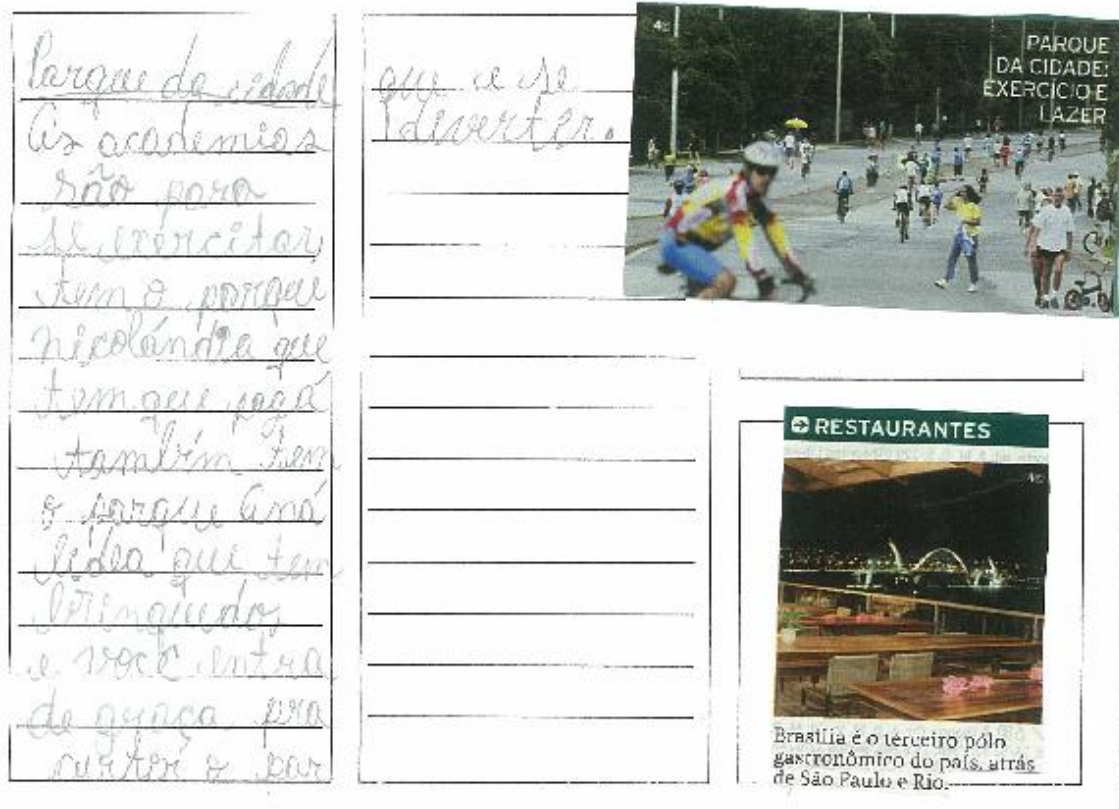 Parque da cidade
As academias
são para
se exercitar
tem o parque
nicolândia que
tem que pagá
também tem
o parque Aná
lídea que tem
brinquedos
e você entra
de graça pra
curtir o par
que e se
diverter.
PARQUE
DA CIDADE:
EXERCÍCIO E
LAZER
RESTAURANTES
Brasília é o terceiro pólo
gastronômico do país, atrás
de São Paulo e Rio.